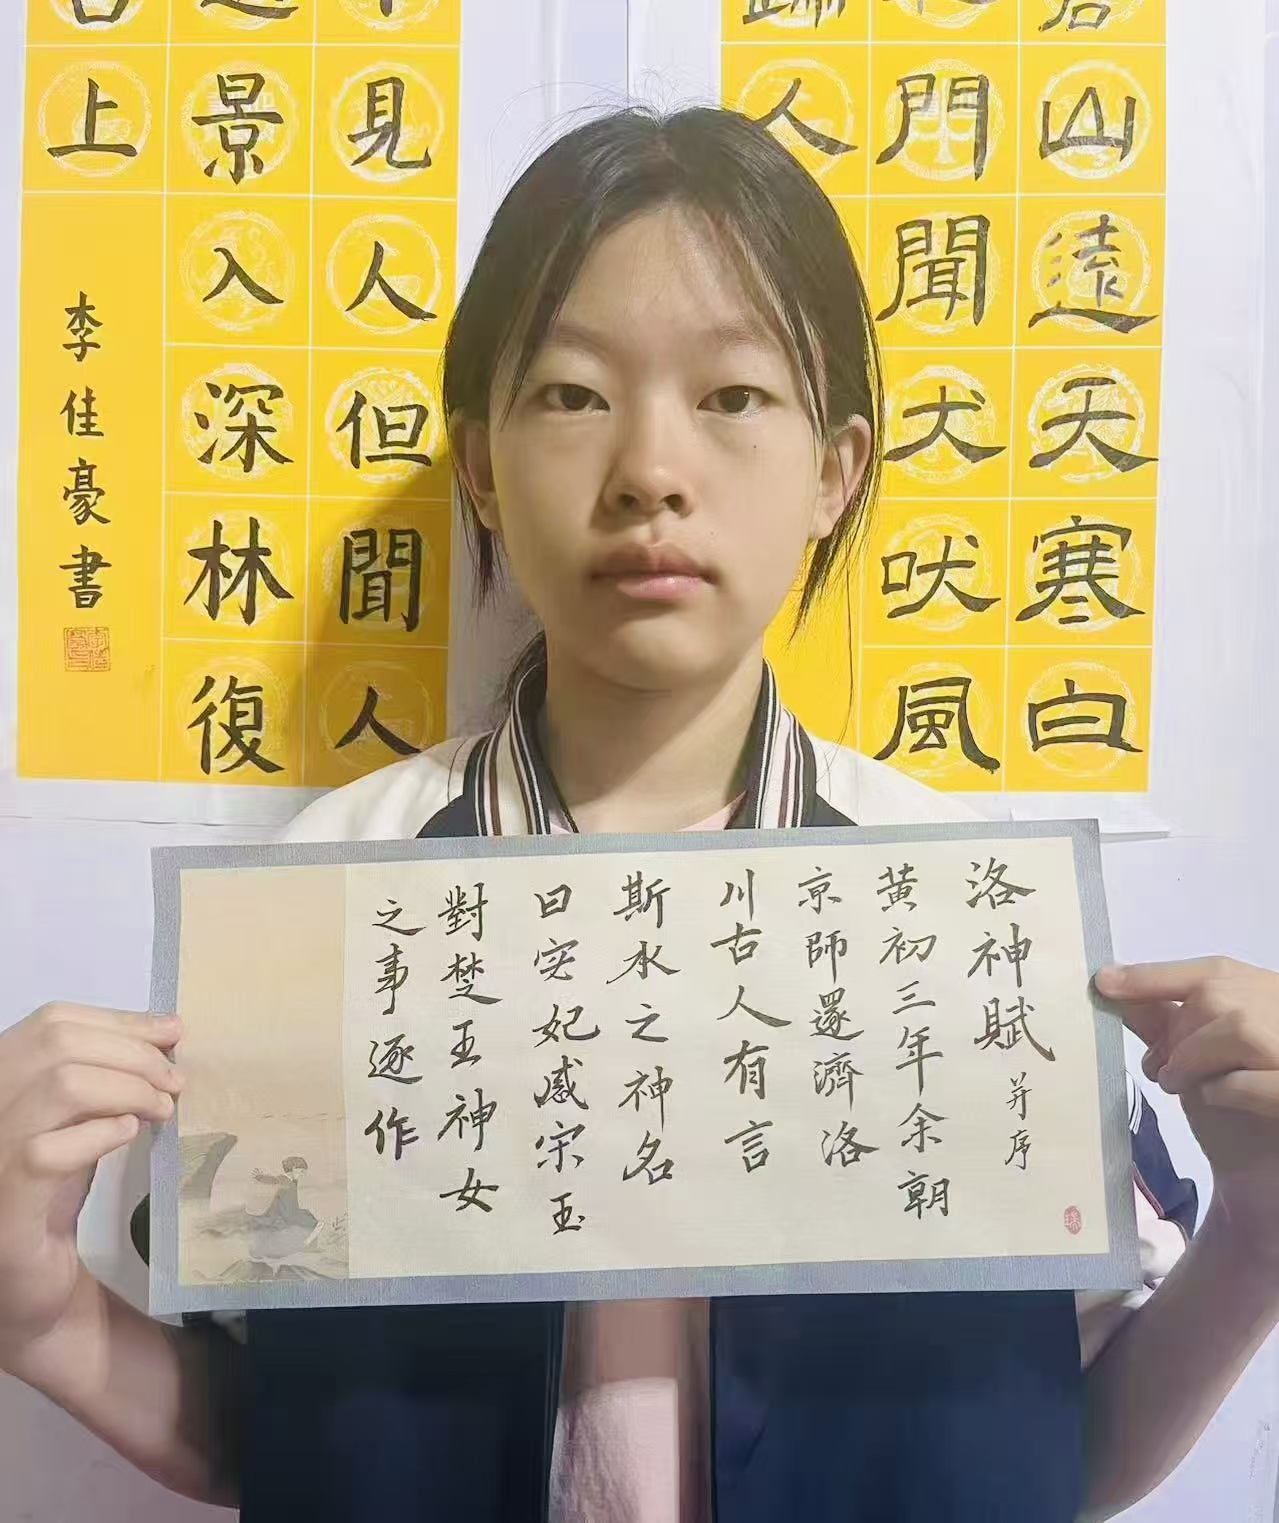 山遠天寒白
門聞犬吠風
人
見人但聞人
景入深林復
上
李佳豪書
洛神賦 并序
黄初三年余朝
京師還濟洛
川古人有言
斯水之神名
曰宓妃感宋玉
對楚王神女
之事遂作